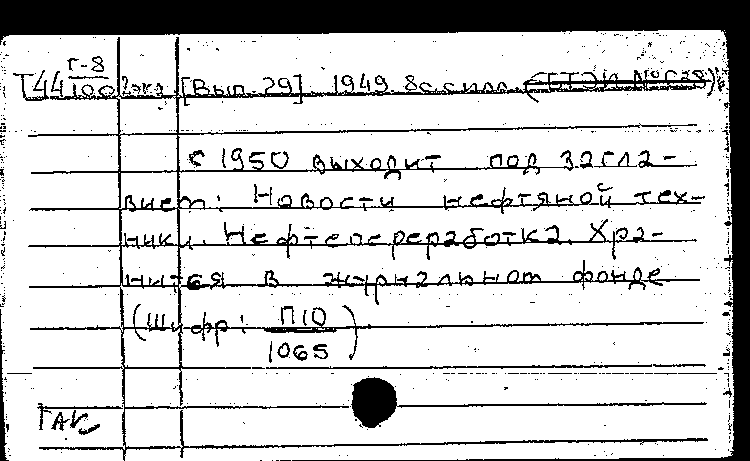 Т44 Г-8/100 2экз [Вып. 29]. 1949. 8с с илл. (ГБТЭИ №С38)
С 1950 выходит под загла-
вием: Новости нефтяной тех-
ники. Нефтепереработка. Хра-
нится в журнальном фонде
(Шифр: П10/1065).